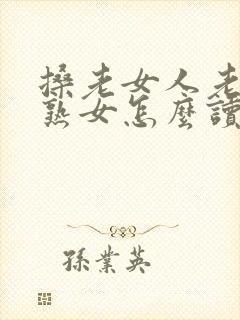 搡老女人老
熟女怎麼讀
孫業英